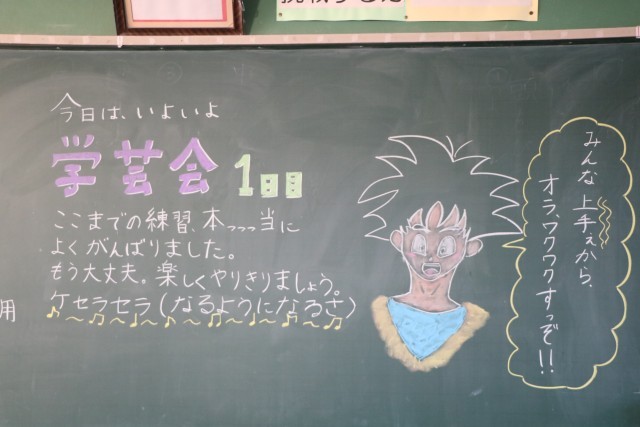 今日は、いよいよ
学芸会 1日目
ここまでの練習、本っっっ当に
よくがんばりました。
もう大丈夫。楽しくやりきりましょう。
ケセラセラ(なるようになるさ)
用
みんな上手ぇから、
オラ、ワクワクすっぞ!!